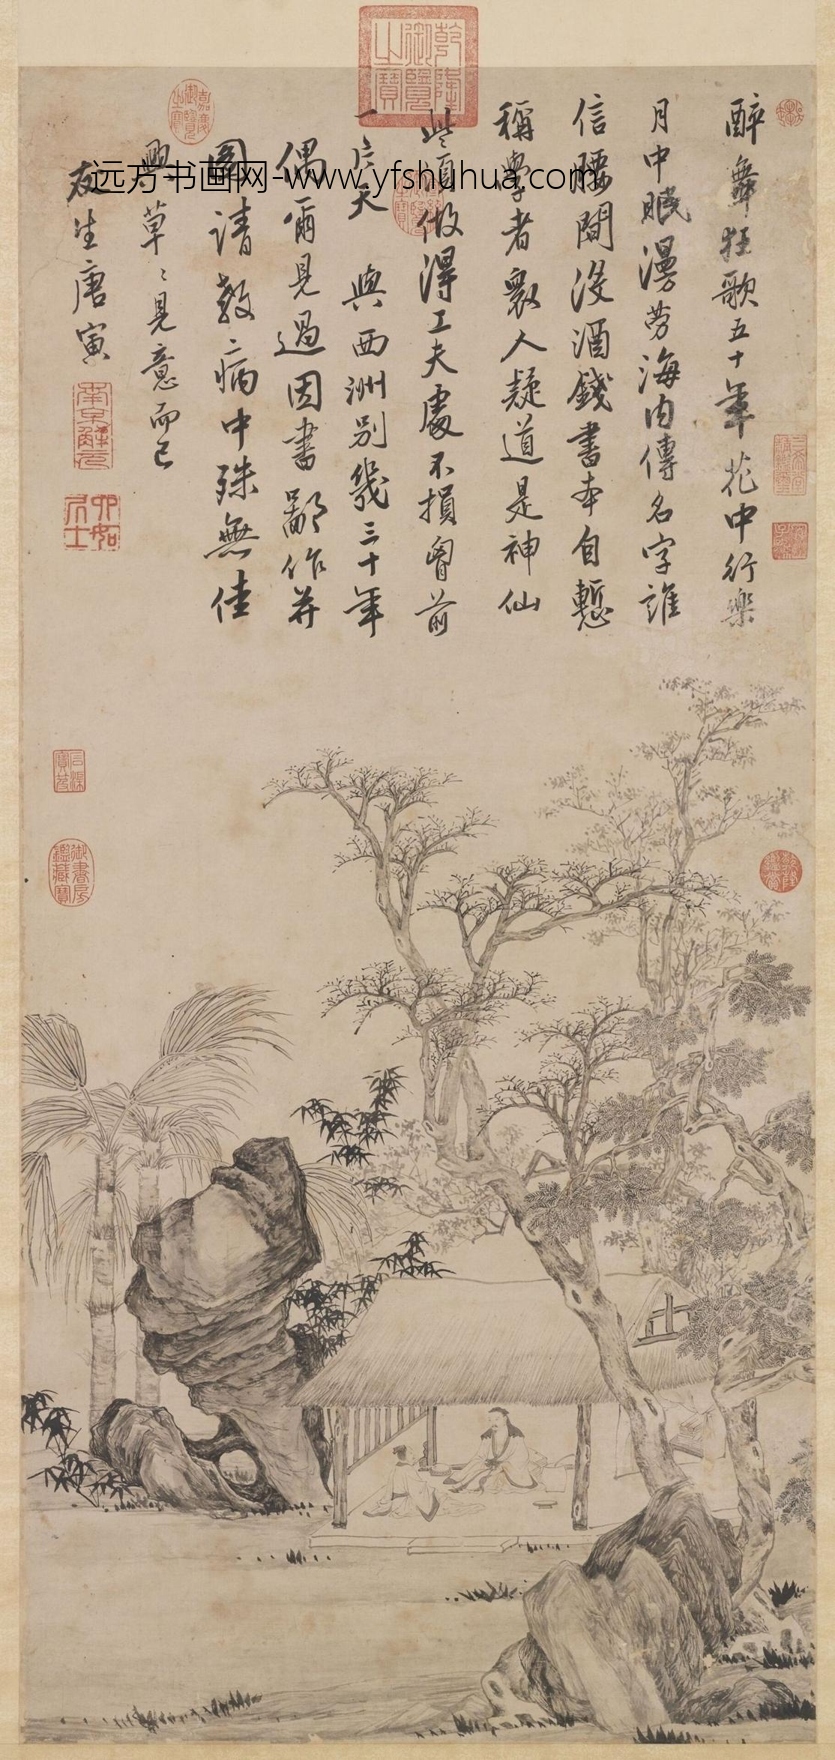 醉舞狂歌五十年花中行樂
月中眠漫勞海內傳名字誰
信腰間沒酒錢書本自慙
稱學者眾人疑道是神仙
些須做得工夫處不損胸前
一片天 與西洲別幾三十年
偶爾見過因書鄙作并
圖請教病中殊無佳
興草〻見意而已
友生唐寅
南京解元
六如居士
乾隆御覽之寶
嘉慶御覽之寶
御書房鑑藏寶
远方书画网-www.yfshuhua.com